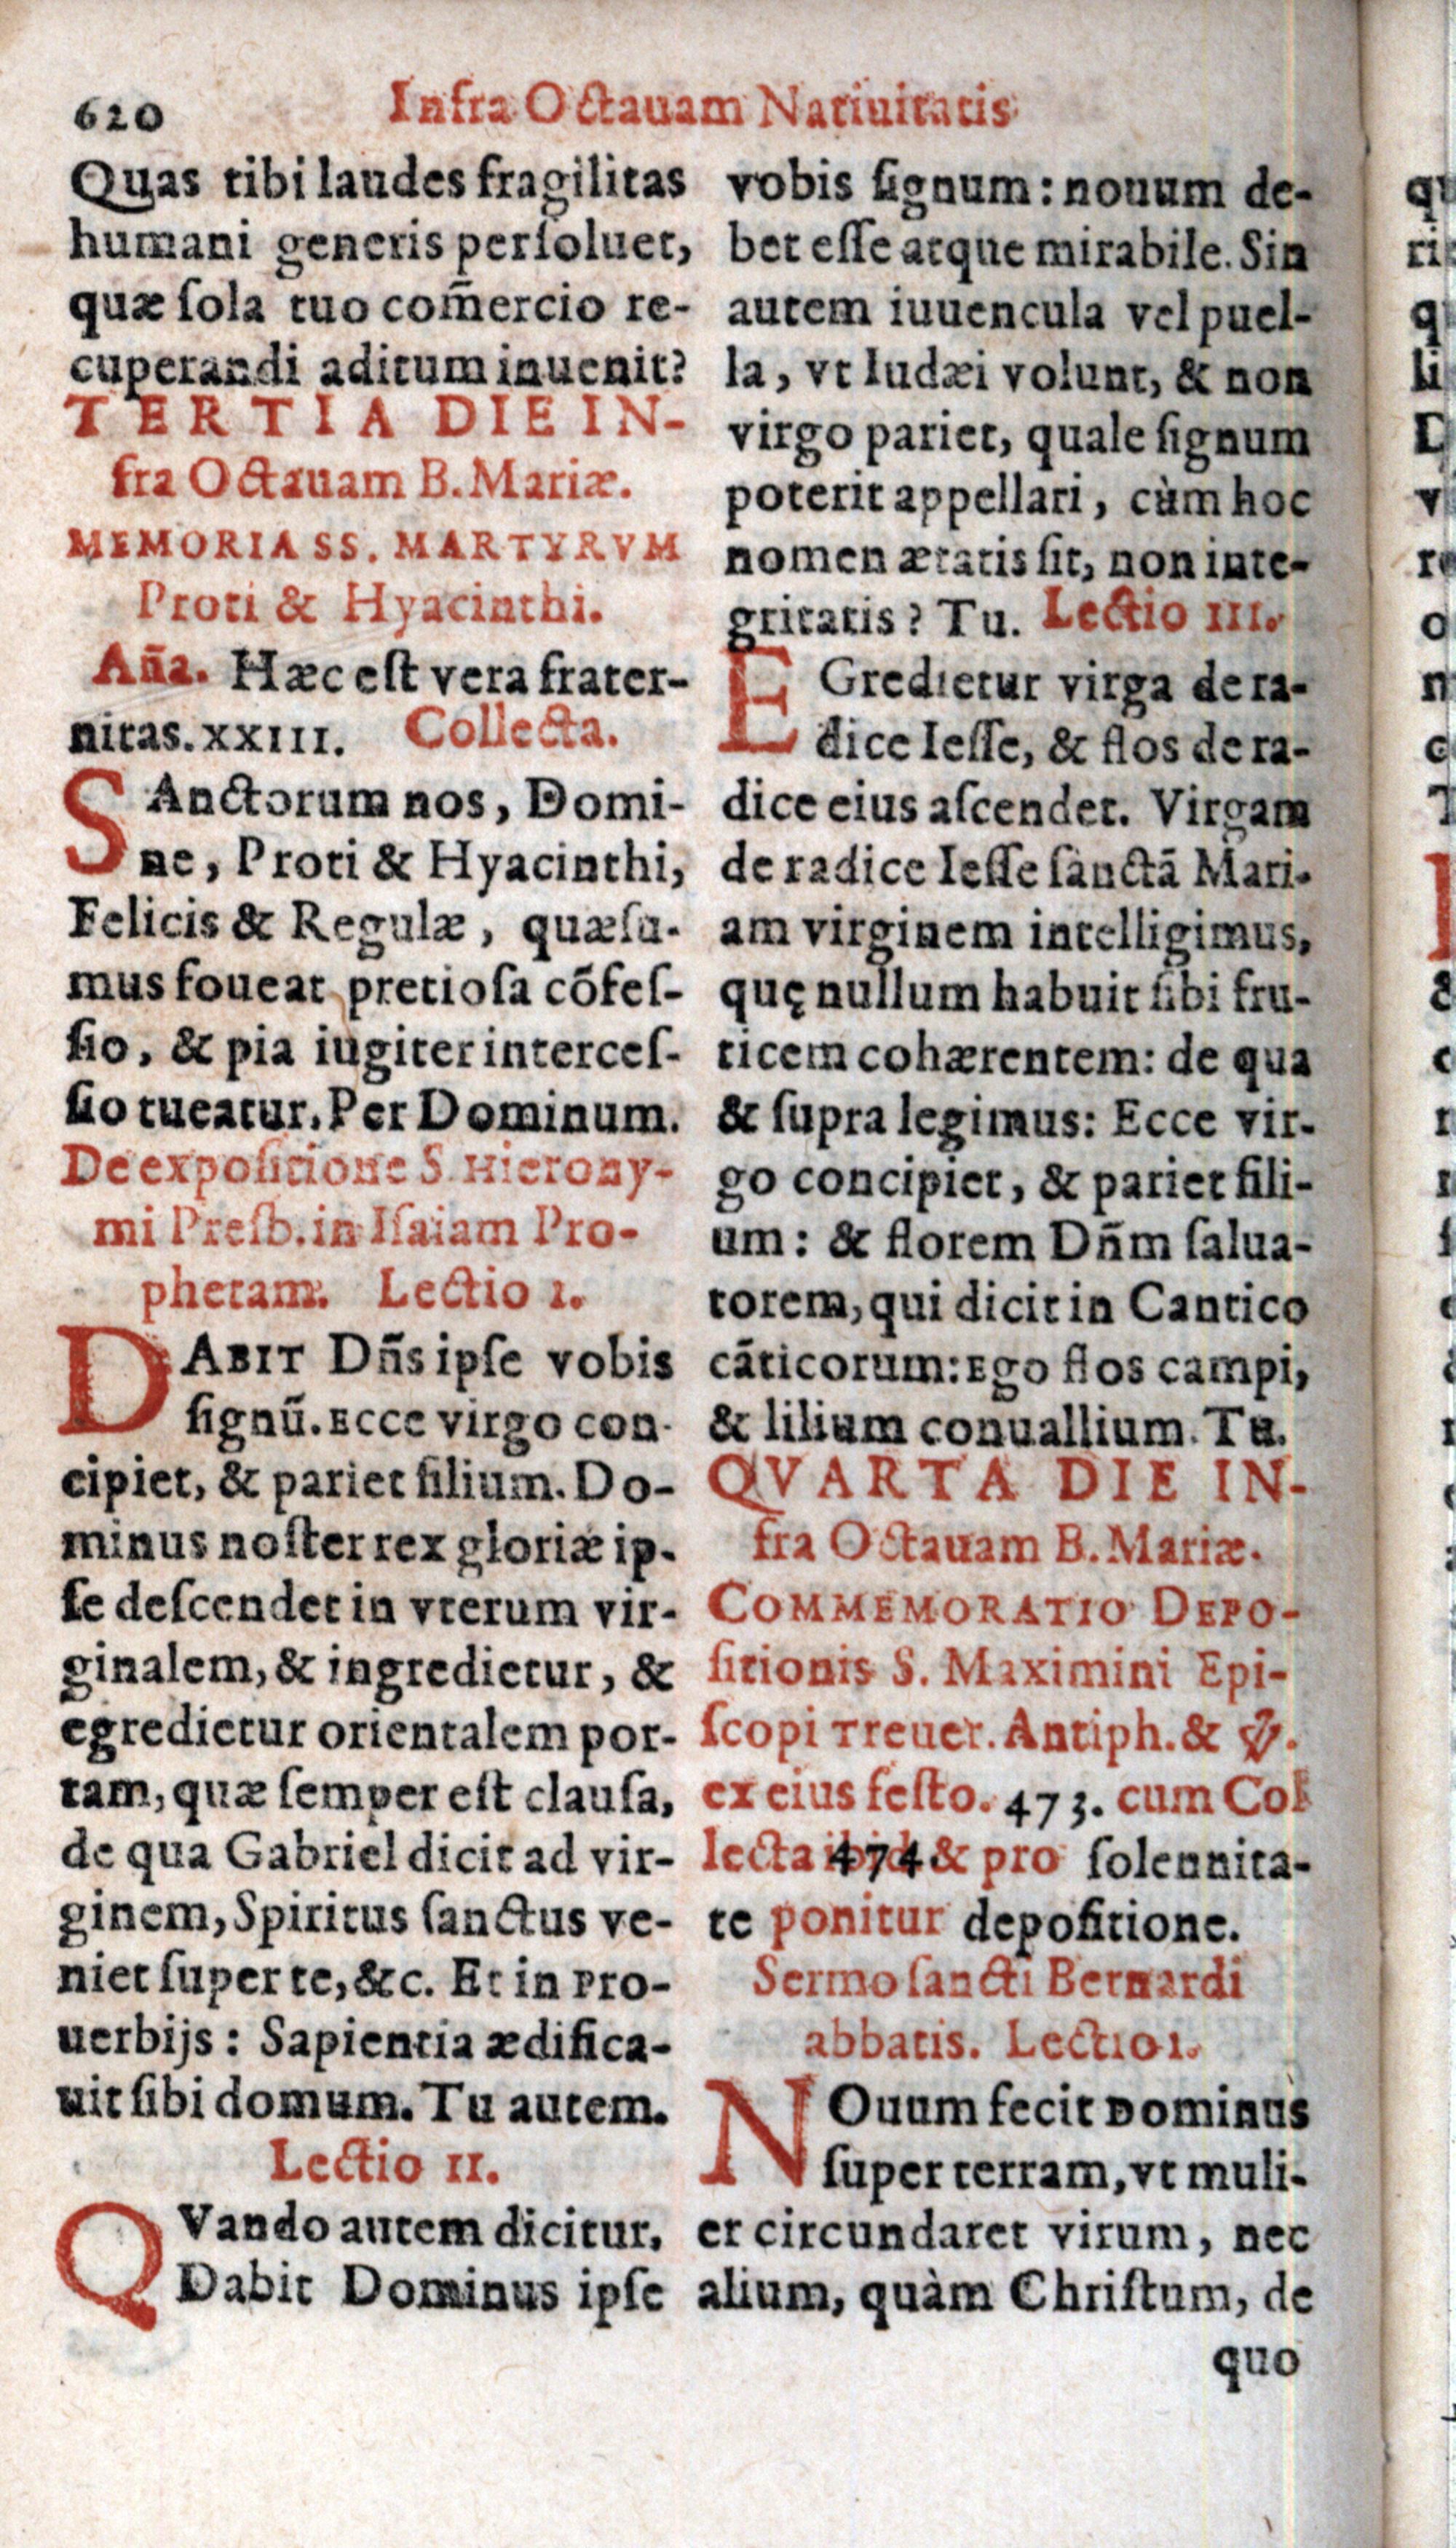 620 Infra Octauam Natiuitatis
Quas tibi laudes fragilitas
humani generis perſoluet,
quæ ſola tuo com̃ercio re-
cuperandi aditum inuenit?
TERTIA DIE IN-
fra Octauam B. Mariæ.
MEMORIA SS. MARTYRVM
Proti & Hyacinthi.
Añа. Hæc eſt vera frater-
nitas. XXIII. Collecta.
SAnctorum nos, Domi-
ne, Proti & Hyacinthi,
Felicis & Regulæ, quæſu-
mus foueat pretioſa cõfeſ-
ſio, & pia iugiter interceſ-
ſio tueatur. Per Dominum.
De expoſitione S. Hierony-
mi Preſb. in Iſaiam Pro-
phetam. Lectio 1.
DABIT Dñs ipſe vobis
ſignũ. Ecce virgo con-
cipiet, & pariet filium. Do-
minus noſter rex gloriæ ip-
ſe deſcendet in vterum vir-
ginalem, & ingredietur, &
egredietur orientalem por-
tam, quæ ſemper eſt clauſa,
de qua Gabriel dicit ad vir-
ginem, Spiritus ſanctus ve-
niet ſuper te, &c. Et in Pro-
uerbijs: Sapientia ædifica-
uit ſibi domum. Tu autem.
Lectio II.
QVando autem dicitur,
Dabit Dominus ipſe
vobis ſignum: nouum de-
bet eſſe atque mirabile. Sin
autem iuuencula vel puel-
la, vt Iudæi volunt, & non
virgo pariet, quale ſignum
poterit appellari, cùm hoc
nomen ætatis ſit, non inte-
gritatis? Tu. Lectio III.
EGredietur virga de ra-
dice Ieſſe, & flos de ra-
dice eius aſcendet. Virgam
de radice Ieſſe ſanctã Mari-
am virginem intelligimus,
quę nullum habuit ſibi fru-
ticem cohærentem: de qua
& ſupra legimus: Ecce vir-
go concipiet, & pariet fili-
um: & florem Dñm ſalua-
torem, qui dicit in Cantico
cãticorum: Ego flos campi,
& lilium conuallium. Tu.
QVARTA DIE IN-
fra Octauam B. Mariæ.
COMMEMORATIO DEPO-
ſitionis S. Maximini Epi-
ſcopi Treuer. Antiph. & ℣.
ex eius feſto. 473. cum Col
lecta ibid. 474. & pro ſolennita-
te ponitur depoſitione.
Sermo ſancti Bernardi
abbatis. Lectio 1.
NOuum fecit Dominus
ſuper terram, vt muli-
er circundaret virum, nec
alium, quàm Chriſtum, de
quo